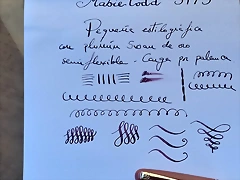 Mabie Todd 3175
Pequeña estilográfica
con plumín Swan de oro
semiflexible - Carga por palanca